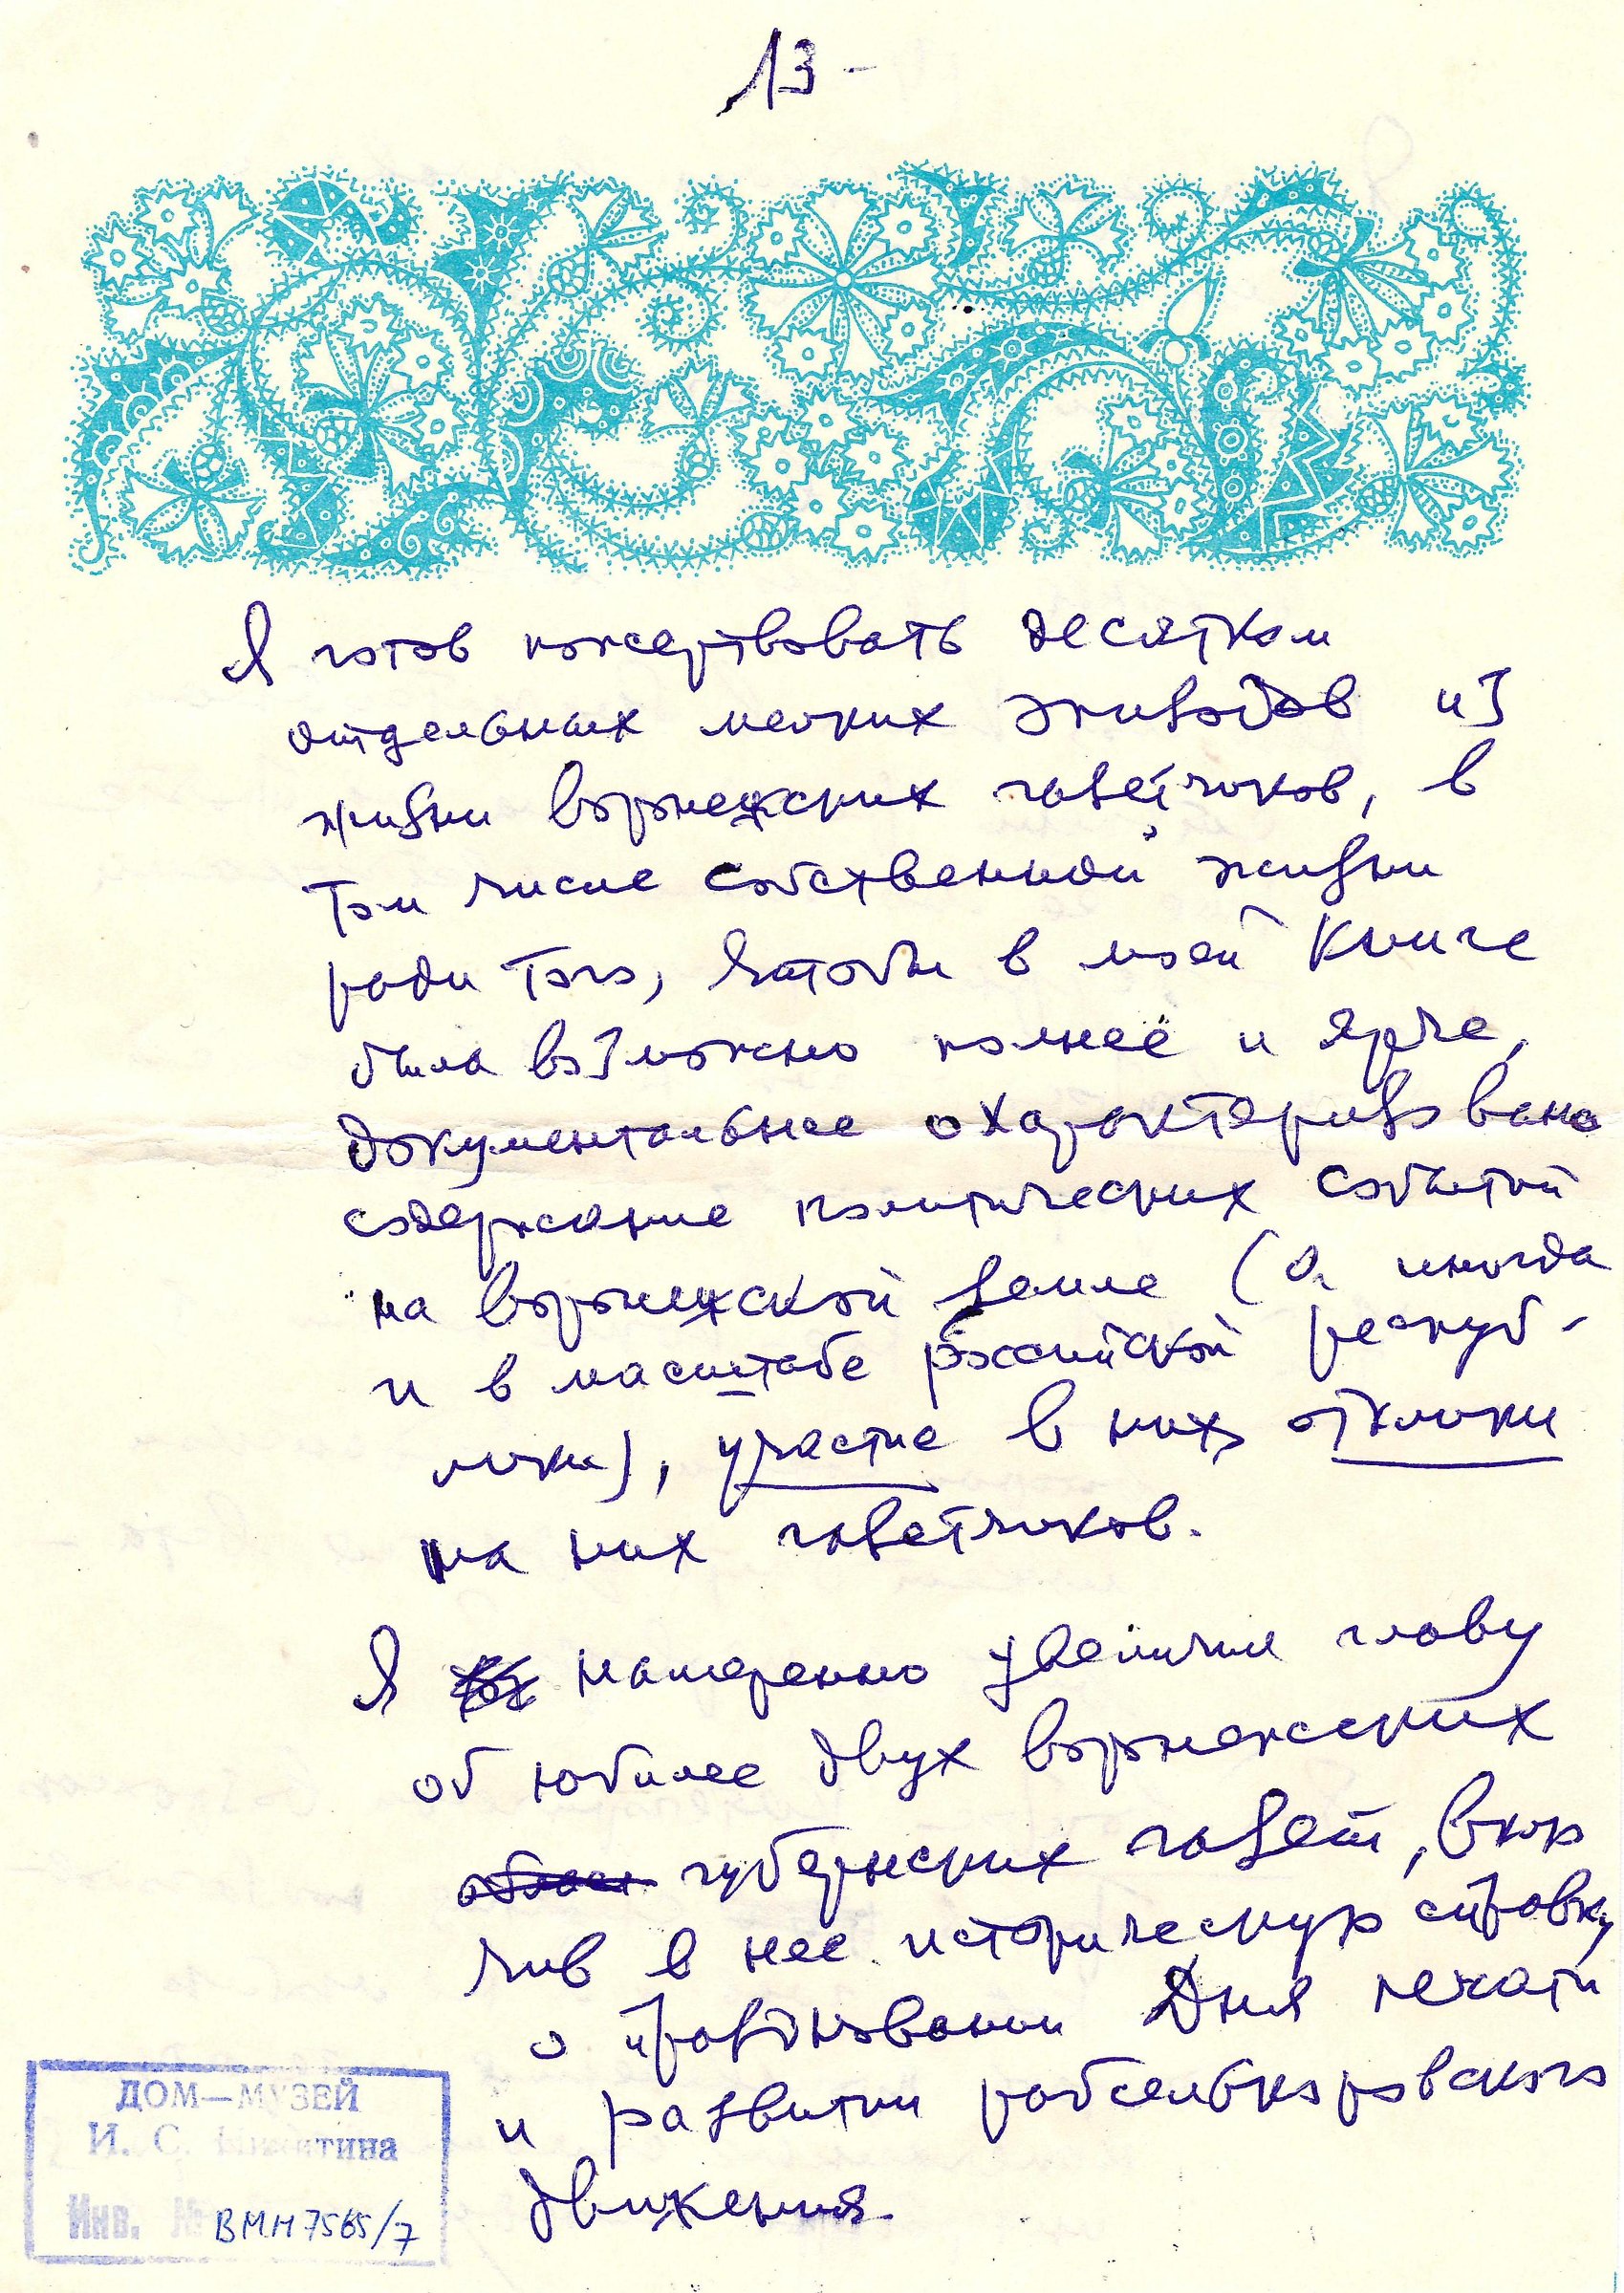 13 -
Я готов пожертвовать десятком
отдельных мелких эпизодов из
жизни воронежских газетчиков, в
том числе собственной жизни
ради того, чтобы в моей книге
была возможно полнее и ярче,
документальнее охарактеризовано
содержание политических событий
на воронежской земле (а иногда
и в масштабе российской респуб-
лики), участие в них, отклики
на них газетчиков.
Я намеренно увеличил главу
об юбилее двух воронежских
област губернских газет, вклю
чив в нее историческую справку
о праздновании Дня печати
и развитии рабселькоровского
движения.
ДОМ—МУЗЕЙ
И. С. Никитина
Инв. № ВМН 7565/7